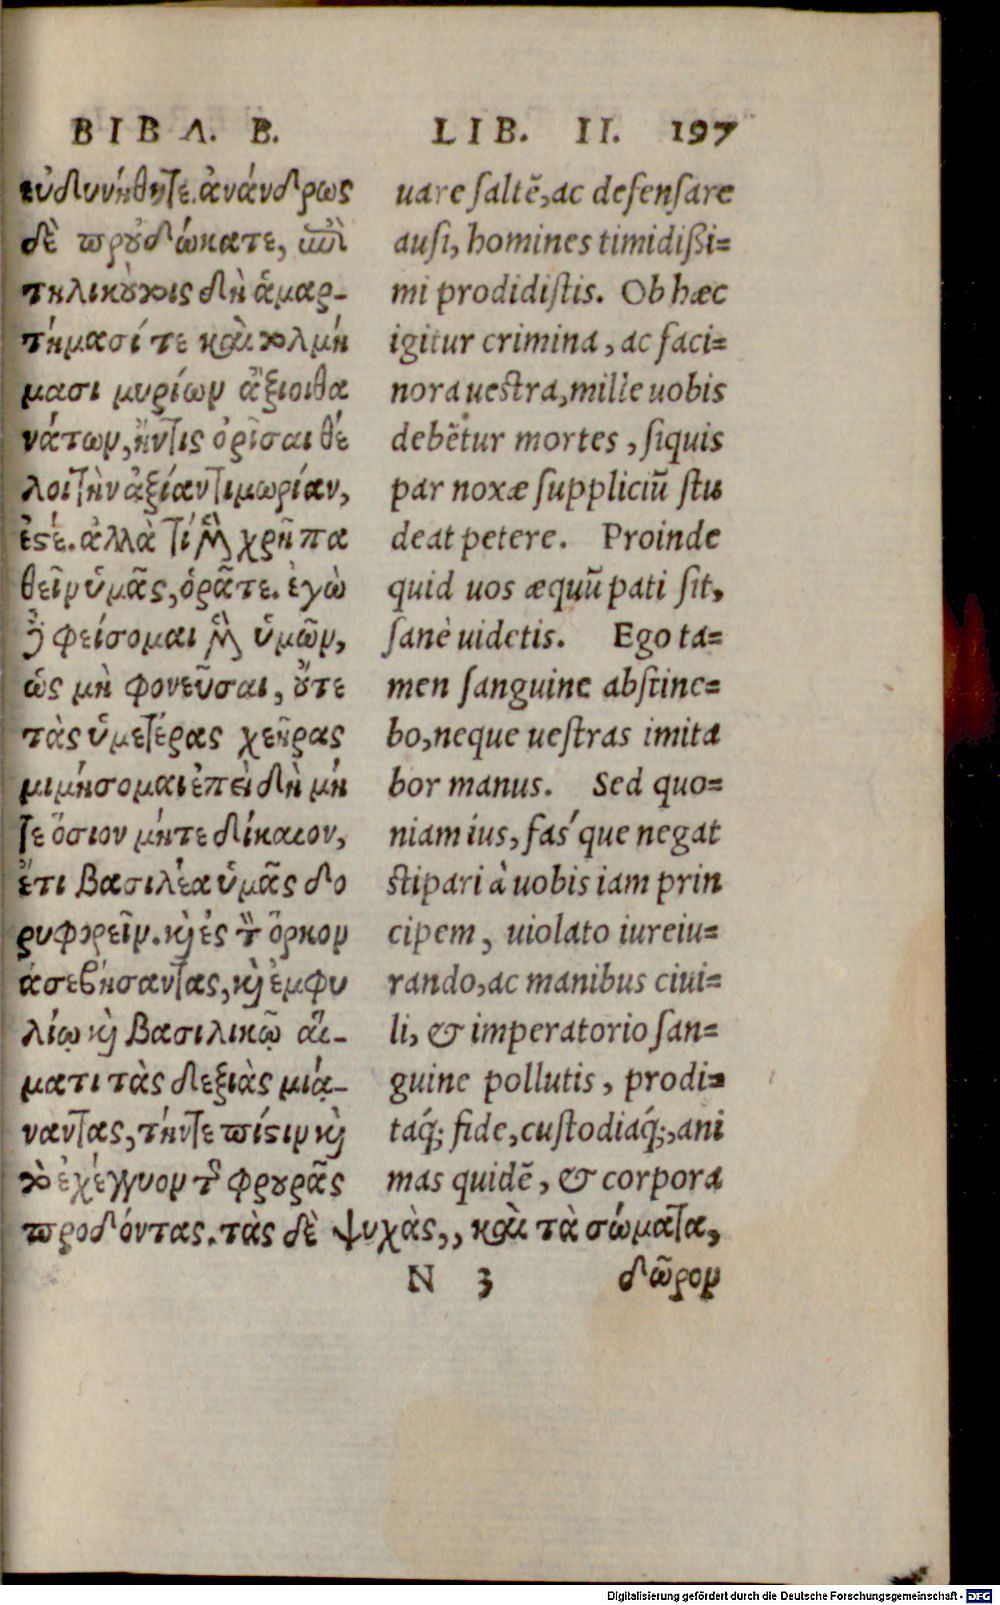 ΒΙΒΛ. Β.
εὐδυνήθητε. ἀνάνδρως
δὲ προὐδώκατε, ἐπὶ
τηλικούτοις δὴ ἁμαρ-
τήμασί τε καὶ τολμή
μασι μυρίων ἄξιοι θα
νάτων, ἤν τις ὁρίσαι θέ
λοι τὴν ἀξίαν τιμωρίαν,
ἐστέ. ἀλλὰ τί μὲν χρῆν πα
θεῖν ὑμᾶς, ὁρᾶτε. ἐγὼ
δὲ φείσομαι μὲν ὑμῶν,
ὡς μὴ φονεῦσαι, οὔτε
τὰς ὑμετέρας χεῖρας
μιμήσομαι ἐπεὶ δὴ μή
τε ὅσιον μήτε δίκαιον,
ἔτι βασιλέα ὑμᾶς δο
ρυφορεῖν. καὶ ἐς τὸν ὅρκον
ἀσεβήσαντας, καὶ ἐμφυ
λίῳ καὶ βασιλικῷ αἵ-
ματι τὰς δεξιὰς μιά-
ναντας, τήν τε πίστιν καὶ
τὸ ἐχέγγυον τῆς φρουρᾶς
προδόντας. τὰς δὲ ψυχὰς,, καὶ τὰ σώματα,
LIB. II. 197
uare saltē, ac defensare
ausi, homines timidißi=
mi prodidistis. Ob hæc
igitur crimina, ac faci=
nora uestra, mille uobis
debētur mortes, siquis
par noxæ suppliciū stu
deat petere. Proinde
quid uos æquū pati sit,
sanè uidetis. Ego ta=
men sanguine abstine=
bo, neque uestras imita
bor manus. Sed quo=
niam ius, fas´que negat
stipari à uobis iam prin
cipem, uiolato iureiu=
rando, ac manibus ciui=
li, & imperatorio san=
guine pollutis, prodi=
taq́; fide, custodiaq́;, ani
mas quidē, & corpora
N 3 δῶρον
Digitalisierung gefördert durch die Deutsche Forschungsgemeinschaft - DFG